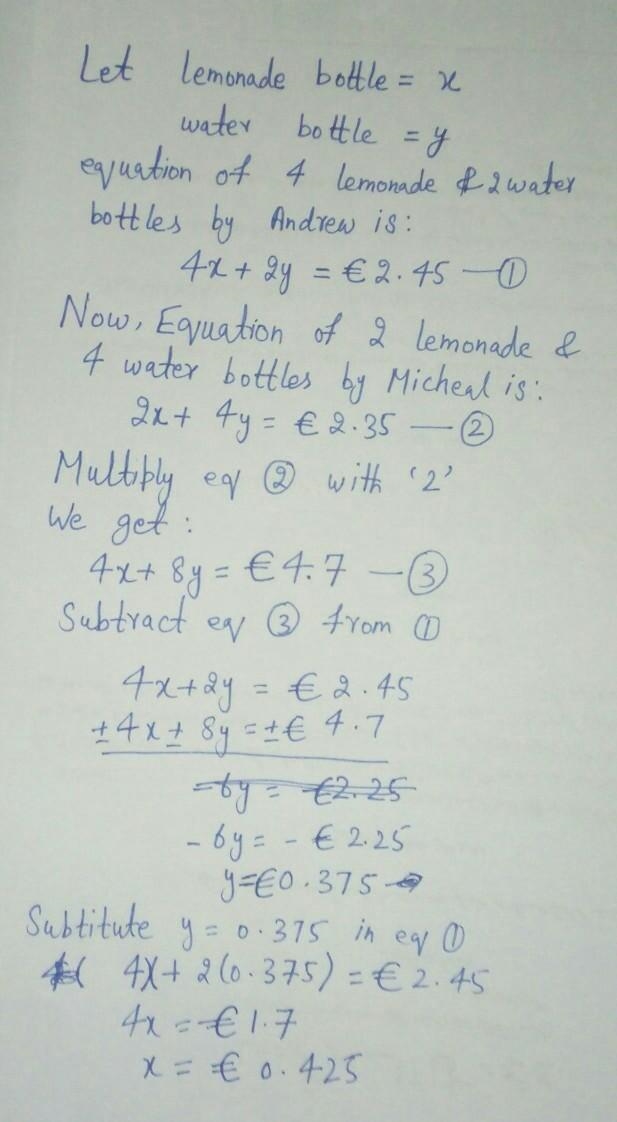 Let lemonade bottle = x
water bottle = y
equation of 4 lemonade & 2 water
bottles by Andrew is:
4x + 2y = € 2.45 — ①
Now, Equation of 2 lemonade &
4 water bottles by Micheal is:
2x + 4y = € 2.35 — ②
Multiply eq ② with '2'
We get:
4x + 8y = € 4.7 — ③
Subtract eq ③ from ①
4x + 2y = € 2.45
±4x ± 8y = ±€ 4.7
-6y = €2.25
- 6y = - € 2.25
y=€0.375
Subtitute y = 0.375 in eq ①
4x + 2(0.375) = € 2.45
4x = € 1.7
x = € 0.425